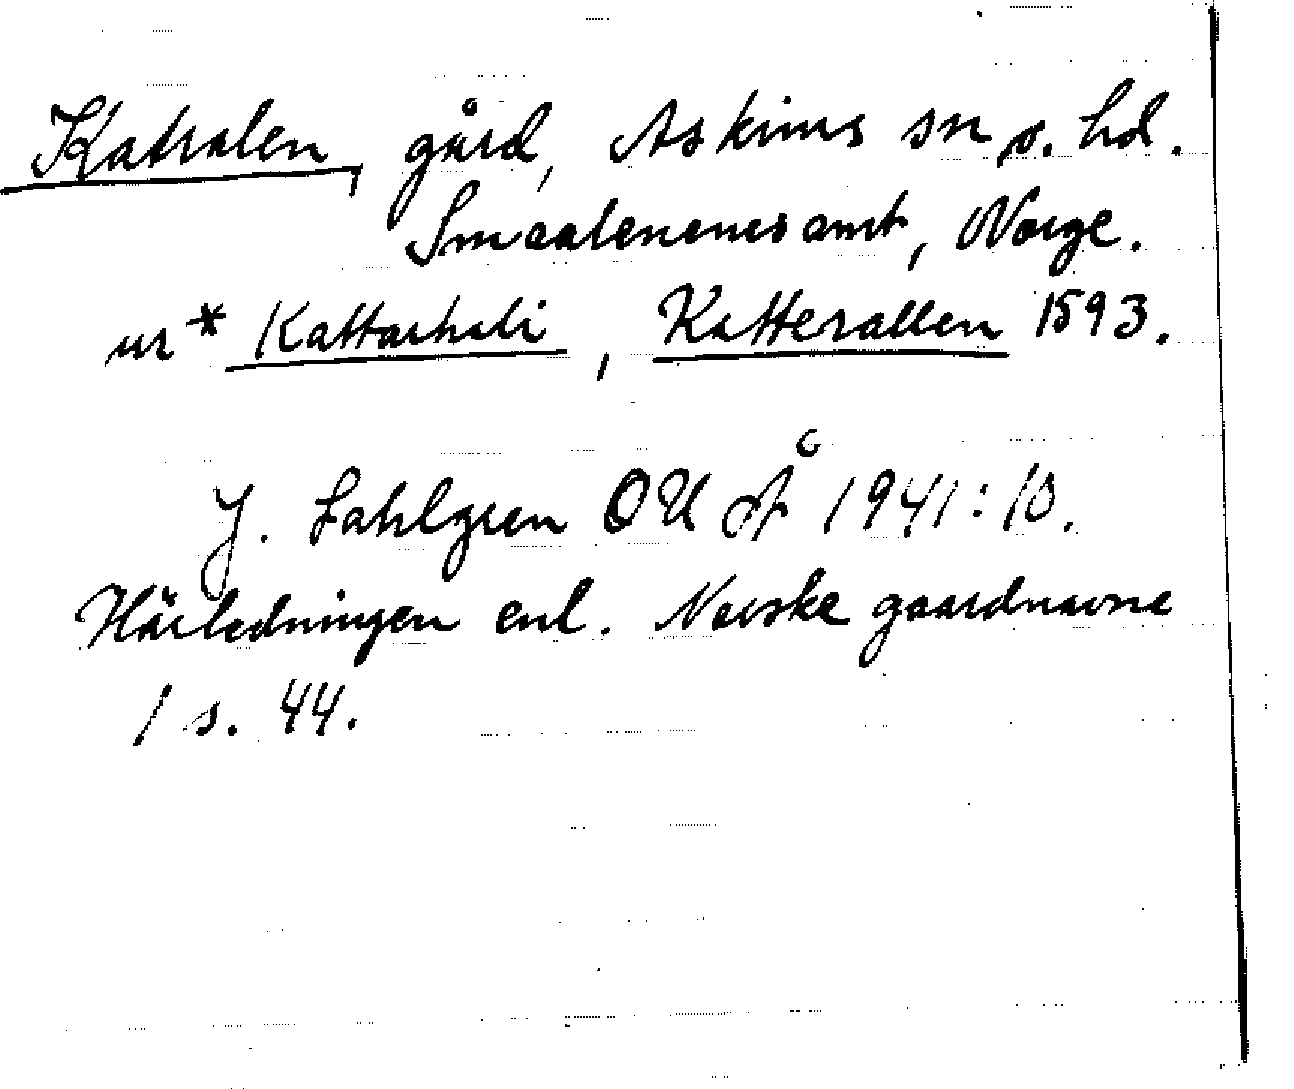 Katralen, gård, Askims sn o. hd.
Smaalenenes amt, Norge.
ur * Kattarhali, Katterallen 1593.
J. Sahlgren OUÅ 1941: 10.
Härledningen enl. Norske gaardnavne
1 s. 44.